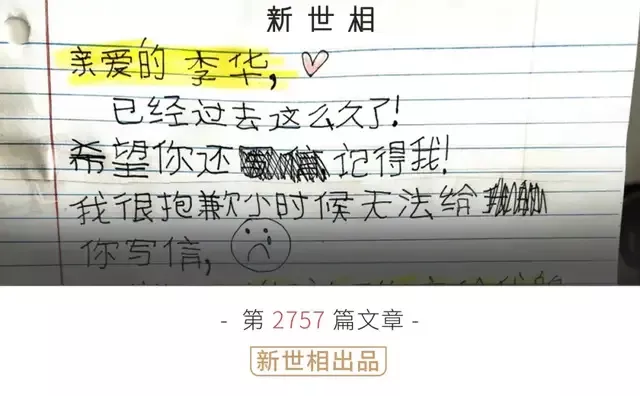 新世相
亲爱的 李华,
已经过去这么久了!
希望你还 记得我!
我很抱歉小时候无法给
你写信,
- 第 2757 篇文章 -
新世相出品